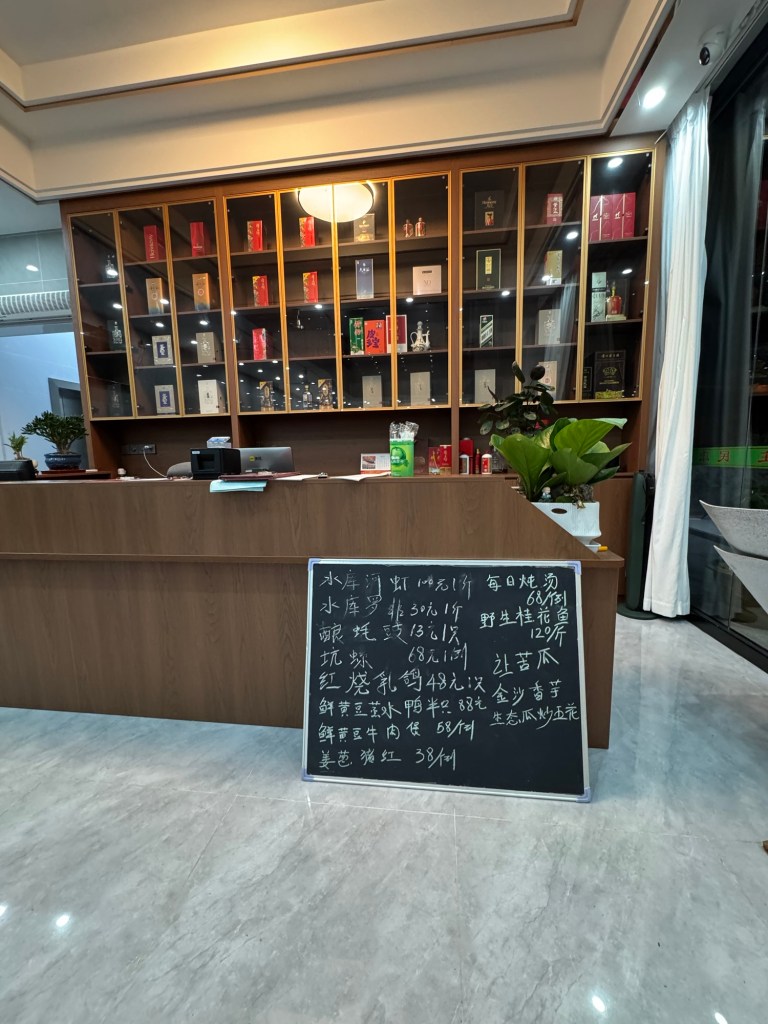 水库河虾108元1斤
水库罗非30元1斤
酿蚝豉13元1只
坑螺 68元1例
红烧乳鸽48元只
鲜黄豆蒸水鸭半只88元
鲜黄豆牛肉煲 58/例
姜芭猪红 38/例
每日炖汤
68/例
野生桂花鱼
120斤
让苦瓜
金沙香芋
生态瓜炒五花